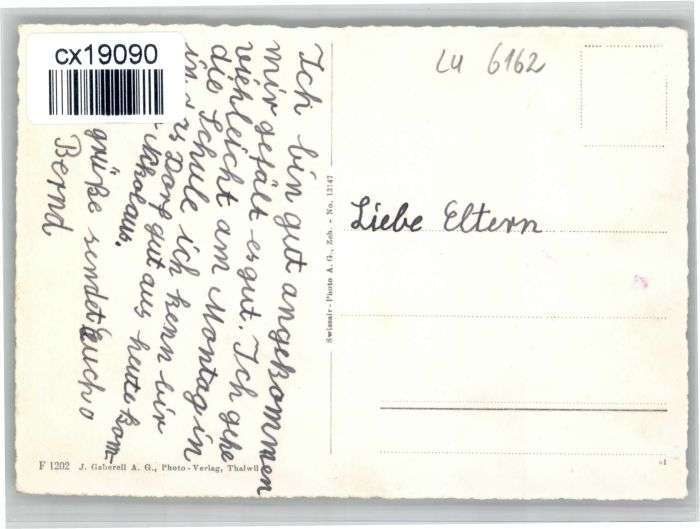 cx19090
LU 6162
Liebe Eltern
Ich bin gut angekommen
mir gefält es gut. Ich gehe
viehleicht am Montag in
die Schule ich kenn
Dorf gut aus heute kom-
nikolaus.
grüße sendet Euch
Bernd
Swissair-Photo A. G., Zch. - No. 13147
F 1202 J. Gaberell A. G., Photo-Verlag, Thalwil